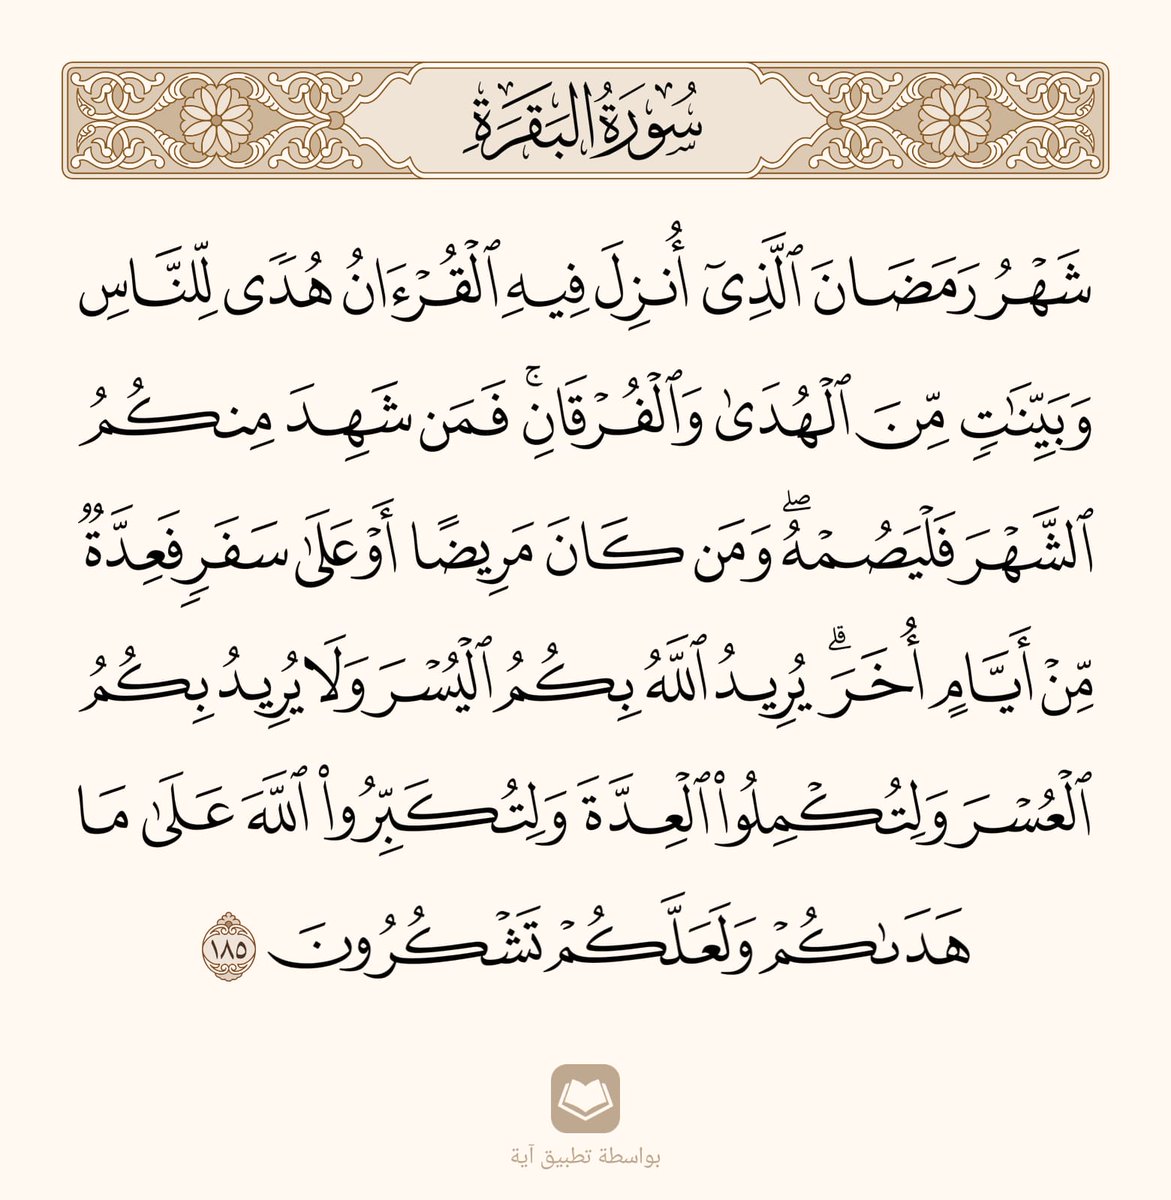 سُورَةُ البَقَرَةِ
شَهۡرُ رَمَضَانَ ٱلَّذِيٓ أُنزِلَ فِيهِ ٱلۡقُرۡءَانُ هُدٗى لِّلنَّاسِ
وَبَيِّنَٰتٖ مِّنَ ٱلۡهُدَىٰ وَٱلۡفُرۡقَانِۚ فَمَن شَهِدَ مِنكُمُ
ٱلشَّهۡرَ فَلۡيَصُمۡهُۖ وَمَن كَانَ مَرِيضًا أَوۡ عَلَىٰ سَفَرٖ فَعِدَّةٞ
مِّنۡ أَيَّامٍ أُخَرَۗ يُرِيدُ ٱللَّهُ بِكُمُ ٱلۡيُسۡرَ وَلَا يُرِيدُ بِكُمُ
ٱلۡعُسۡرَ وَلِتُكۡمِلُواْ ٱلۡعِدَّةَ وَلِتُكَبِّرُواْ ٱللَّهَ عَلَىٰ مَا
هَدَىٰكُمۡ وَلَعَلَّكُمۡ تَشۡكُرُونَ ١٨٥
بواسطة تطبيق آية